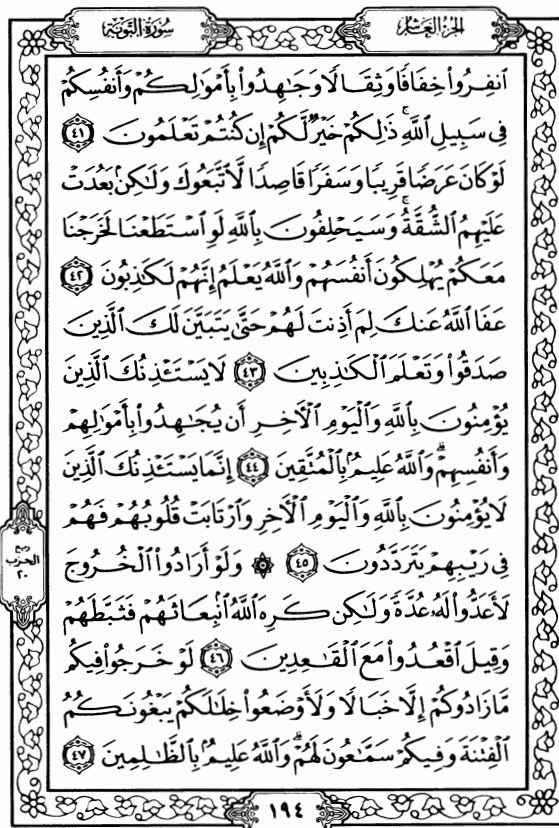 سُورَةُ التَّوْبَةِ
الجُزْءُ العَاشِرُ
ٱنفِرُواْ خِفَافًا وَثِقَالًا وَجَٰهِدُواْ بِأَمْوَٰلِكُمْ وَأَنفُسِكُمْ
فِى سَبِيلِ ٱللَّهِ ۚ ذَٰلِكُمْ خَيْرٌ لَّكُمْ إِن كُنتُمْ تَعْلَمُونَ ٤١
لَوْ كَانَ عَرَضًا قَرِيبًا وَسَفَرًا قَاصِدًا لَّٱتَّبَعُوكَ وَلَٰكِنۢ بَعُدَتْ
عَلَيْهِمُ ٱلشُّقَّةُ ۚ وَسَيَحْلِفُونَ بِٱللَّهِ لَوِ ٱسْتَطَعْنَا لَخَرَجْنَا
مَعَكُمْ يُهْلِكُونَ أَنفُسَهُمْ وَٱللَّهُ يَعْلَمُ إِنَّهُمْ لَكَٰذِبُونَ ٤٢
عَفَا ٱللَّهُ عَنكَ لِمَ أَذِنتَ لَهُمْ حَتَّىٰ يَتَبَيَّنَ لَكَ ٱلَّذِينَ
صَدَقُواْ وَتَعْلَمَ ٱلْكَٰذِبِينَ ٤٣ لَا يَسْتَـْٔذِنُكَ ٱلَّذِينَ
يُؤْمِنُونَ بِٱللَّهِ وَٱلْيَوْمِ ٱلْـَٔاخِرِ أَن يُجَٰهِدُواْ بِأَمْوَٰلِهِمْ
وَأَنفُسِهِمْ ۗ وَٱللَّهُ عَلِيمٌۢ بِٱلْمُتَّقِينَ ٤٤ إِنَّمَا يَسْتَـْٔذِنُكَ ٱلَّذِينَ
لَا يُؤْمِنُونَ بِٱللَّهِ وَٱلْيَوْمِ ٱلْـَٔاخِرِ وَٱرْتَابَتْ قُلُوبُهُمْ فَهُمْ
فِى رَيْبِهِمْ يَتَرَدَّدُونَ ٤٥ ۞ وَلَوْ أَرَادُواْ ٱلْخُرُوجَ
لَأَعَدُّواْ لَهُۥ عُدَّةً وَلَٰكِن كَرِهَ ٱللَّهُ ٱنۢبِعَاثَهُمْ فَثَبَّطَهُمْ
وَقِيلَ ٱقْعُدُواْ مَعَ ٱلْقَٰعِدِينَ ٤٦ لَوْ خَرَجُواْ فِيكُم
مَّا زَادُوكُمْ إِلَّا خَبَالًا وَلَأَوْضَعُواْ خِلَٰلَكُمْ يَبْغُونَكُمُ
ٱلْفِتْنَةَ وَفِيكُمْ سَمَّٰعُونَ لَهُمْ ۗ وَٱللَّهُ عَلِيمٌۢ بِٱلظَّٰلِمِينَ ٤٧
ربع
الحزب
٢٠
١٩٤